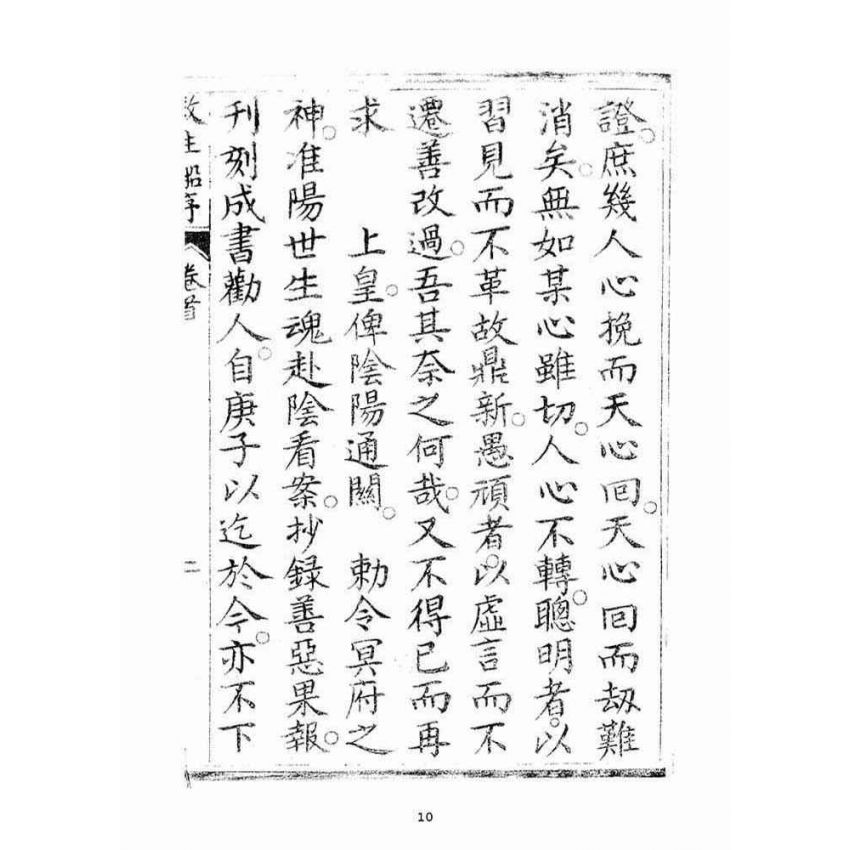 證。庶幾人心挽而天心回。天心回而刼難
消矣。無如某心雖切。人心不轉。聰明者。以
習見而不革故鼎新。愚頑者。以虛言而不
遷善改過。吾其奈之何哉。又不得已而再
求　　上皇。俾陰陽通關。　勅令冥府之
神。准陽世生魂赴陰看案。抄錄善惡果報。
刊刻成書勸人。自庚子以迄於今。亦不下
救生船序　卷首　二
10